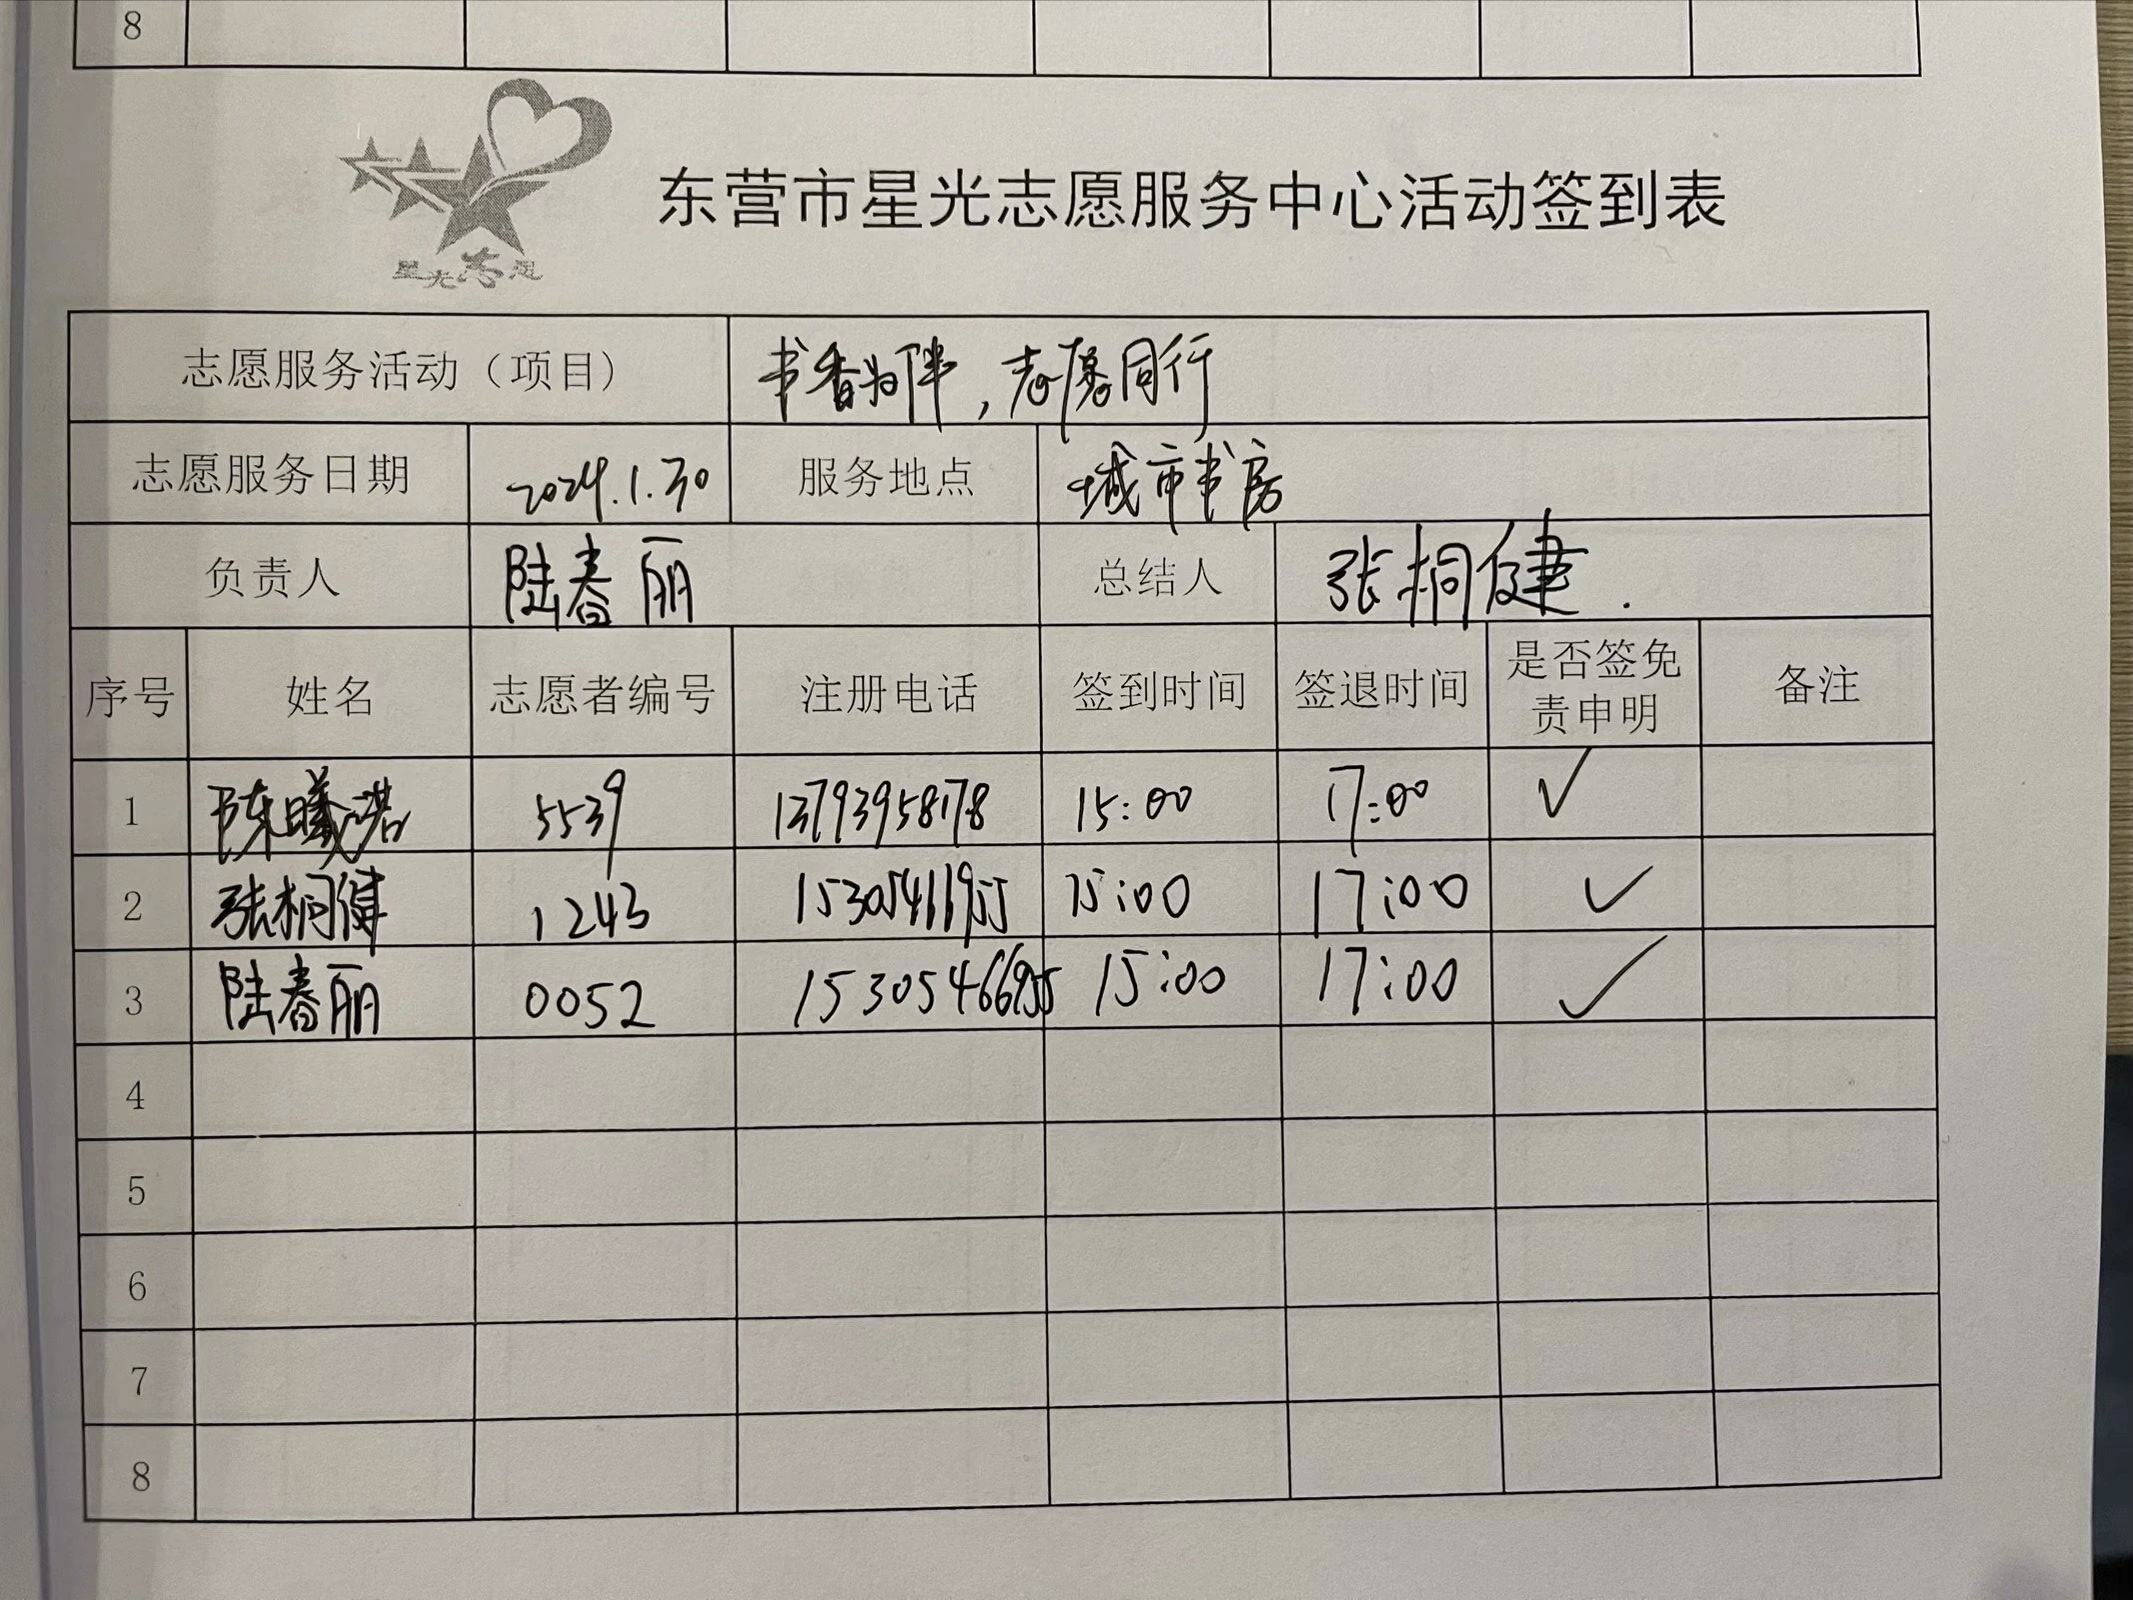 8
星光志愿
东营市星光志愿服务中心活动签到表
志愿服务活动（项目） 书香为伴，志愿同行
志愿服务日期 2024.1.30 服务地点 城市书房
负责人 陆春丽 总结人 张桐健.
序号 姓名 志愿者编号 注册电话 签到时间 签退时间 是否签免责申明 备注
1 陈曦诺 5539 13793958178 15:00 17:00 ✓
2 张桐健 1243 15305411955 15:00 17:00 ✓
3 陆春丽 0052 15305466955 15:00 17:00 ✓
4
5
6
7
8